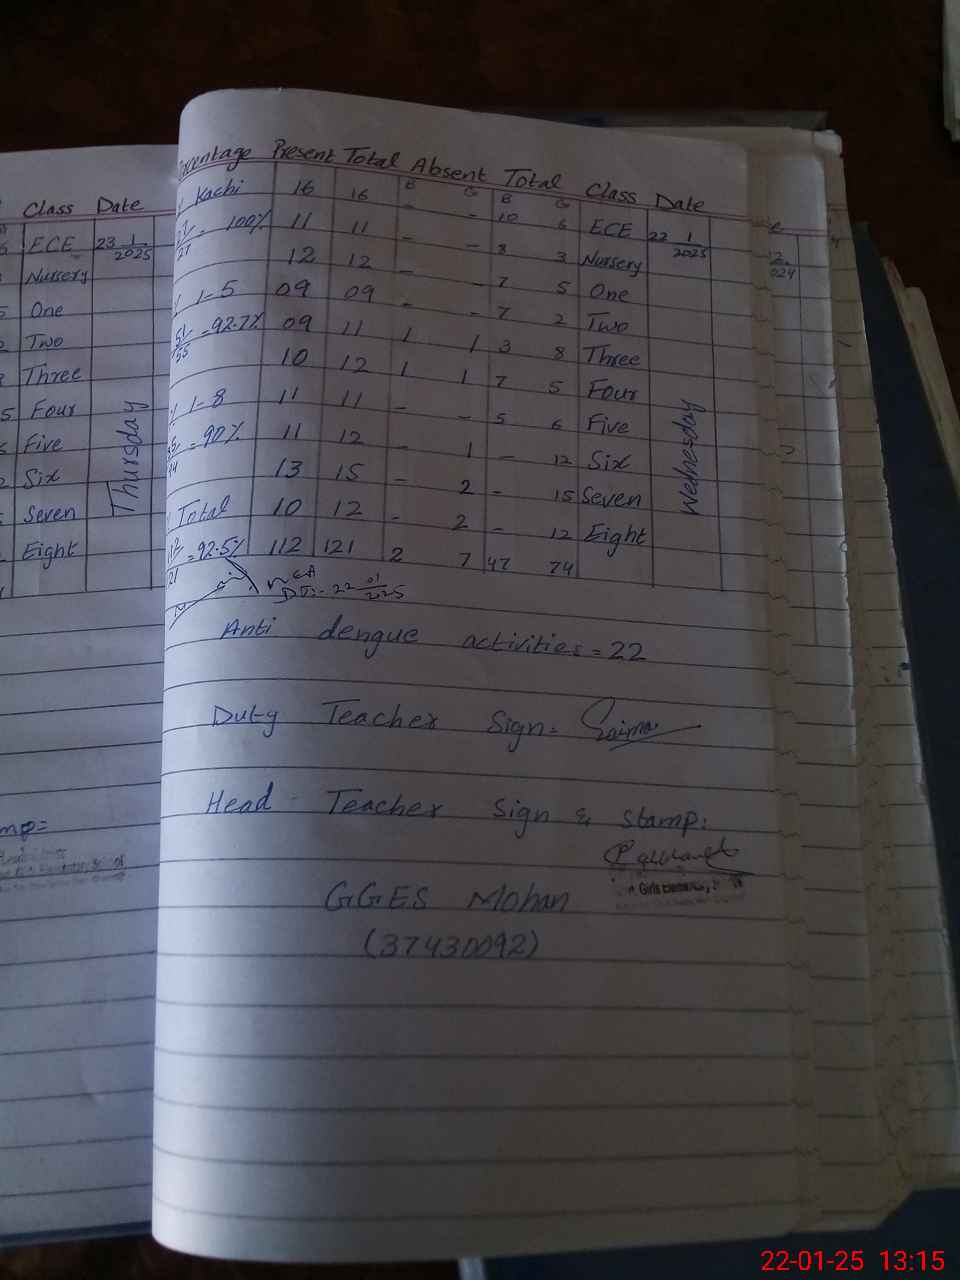 Class Date
ECE 23 1/2025
Nursery
One
Two
Three
Four
Five
Six
Seven
Eight
Thursday
Present Total Absent Total Class Date
B G B G
Kachi 16 16 - - 10 6 ECE 22 1/2025
27/27 = 100% 11 11 - - 8 3 Nursery
12 12 - - 7 5 One
1-5 09 09 - - 7 2 Two
51/55 = 92.7% 09 11 1 1 3 8 Three
10 12 1 1 7 5 Four
1-8 11 11 - - 5 6 Five
= 90% 11 12 - 1 - 12 Six
13 15 - 2 - 15 Seven
Total 10 12 - 2 - 12 Eight
= 92.5% 112 121 2 7 47 74
Wednesday
Anti dengue activities = 22
Duty Teacher Sign = Saima
Head Teacher Sign & Stamp:
GGES Mohan
(37430092)
22-01-25 13:15